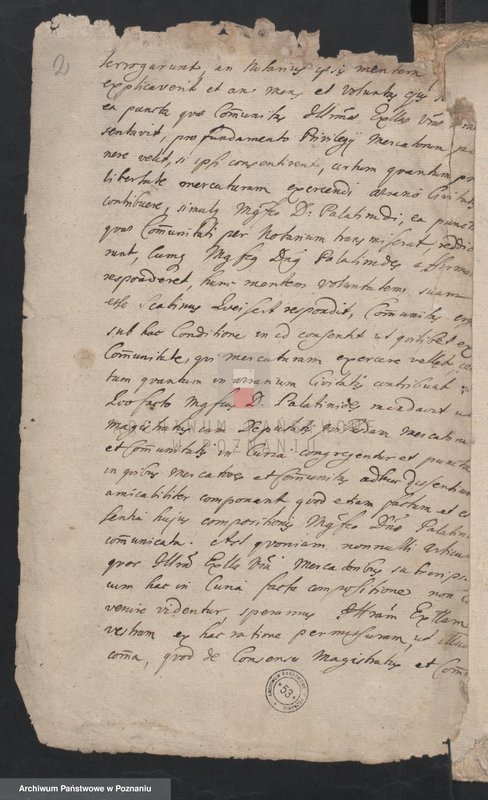 2
terrogarunt, an Notarius ipsis mentem
explicaverit et an mens et voluntas ejus
ea puncta quae Com̄unitas Illm̄ae Exllae Vr̄ae
sentavit, pro fundamento Privilegij Mercatorum
nere velit, si ipsi consentirent, certum quantum pro
libertate mercaturam exercendi aerario Civitatis
contribuere, simulq Mgfco D. Palatinidi, ea puncta
quae Com̄unitati per Notarium transmiserat reddide
runt, Cumq Mgfcq Dn̄q Palatinides a
responderet, hanc mentem voluntatemq suam
esse Scabinus respondit, Com̄unitas
sub hac Conditione in id consentit ut quilibet ex
Com̄unitate, qui mercaturam exercere vellet, cer
tum quantum in aerarium Civitatis contribuat
Quo facto Mgfcus D. Palatinides mandavit ut
Magistratus tam Deputati quidam Mercatorum
et Com̄unitatis in Curia congregentur et puncta
in quibus Mercatores et Com̄unitas adhuc dissentiunt
amicabiliter componant quod etiam factum et
sentia hujus compositionis Mgfco Dn̄o Palatini
com̄unicata. Ast quoniam nonnulli articuli
quos Illm̄a Exlla Vr̄a Mercatoribus subscripsit
cum hac in Curia facta compositione non
venire videntur, speramus Illm̄am Exllam
vestram ex hac ratione permissuram, ut
com̄a, quod de Consensu Magistratus et Com̄
ARCHIWUM PAŃSTWOWE
W POZNANIU
53
Archiwum Państwowe w Poznaniu